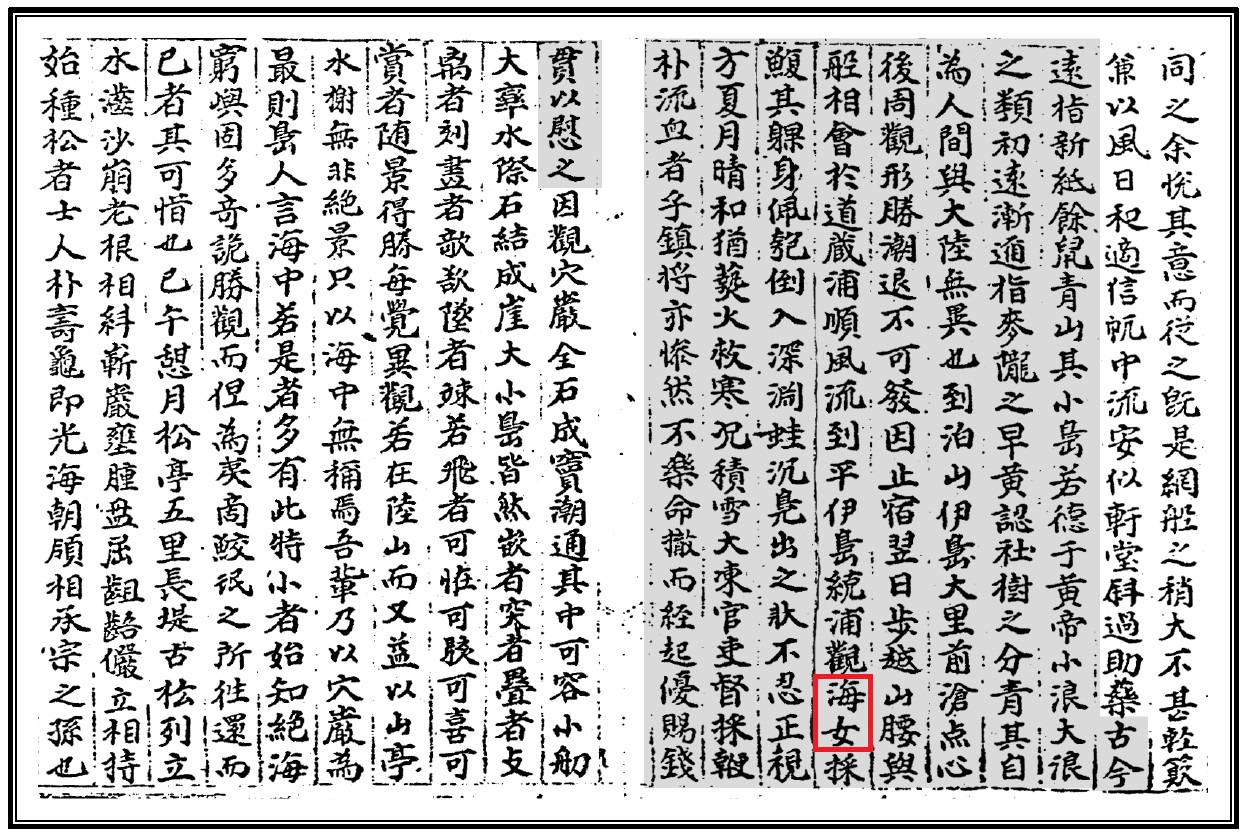 同之余悅其意而從之旣是網船之稍大不甚輕簸
兼以風日和適信帆中流安似軒堂斜過助藥古今
遠指新紙餘鼠靑山其小島若德于黃帝小浪大浪
之類初遠漸邇指麥隴之早黃認社樹之分靑其自
爲人間與大陸無異也到泊山伊島大里前滄点心
後周觀形勝潮退不可發因止宿翌日步越山腰與
船相會於道藏浦順風流到平伊島統浦觀海女採
鰒其躶身佩匏倒入深淵蛙沉鳧出之狀不忍正視
方夏月晴和猶爇火救寒況積雪大凍官吏督採鞭
朴流血者乎鎭將亦慘然不樂命撤而經起優賜錢
貫以慰之因觀穴巖全石成竇潮通其中可容小舠
大率水際石結成崖大小島皆然欹者突者疊者攴
禼者刻畫者欹墜者竦若飛者可恠可駭可喜可
賞者隨景得勝每覺異觀若在陸山而又益以山亭
水榭無非絶景只以海中無稱焉吾輩乃以穴巖爲
最則島人言海中若是者多有此特小者始知絶海
窮嶼固多奇詭勝觀而但爲羑商鮫氓之所往還而
已者其可惜也已午憇月松亭五里長堤古松列立
水嚙沙崩老根相糾嶄巖壅腫盘屈齟齬儼立相持
始種松者士人朴壽龜卽光海朝領相承宗之孫也